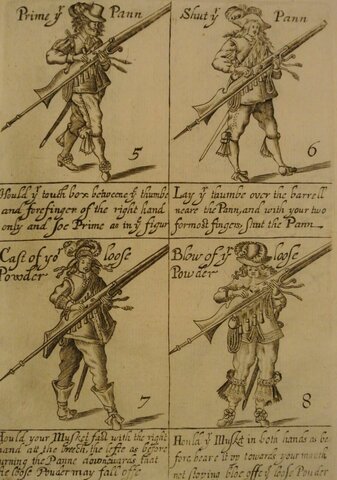 Prime yͤ Pann
5
Hould yͤ touch box betweene yͤ thumbe
and forefinger of the right hand
only and soe Prime as in yͤ figur
Shut yͤ Pann
6
Lay yͤ thumbe over the barrell
neare the Pann, and with your two
formost fingers shut the Pann
Cast of yoͬ loose
Powder
7
Hould your Musket fast with the right
hand att the breech, the lefte as before
turning the Panne downewards that
the loose Powder may fall offe
Blow of yͬ loose
Powder
8
Hould yͤ Musket in both hands as be
fore beare it vp towards your mouth
not stoping blow offe yͤ loose Powder